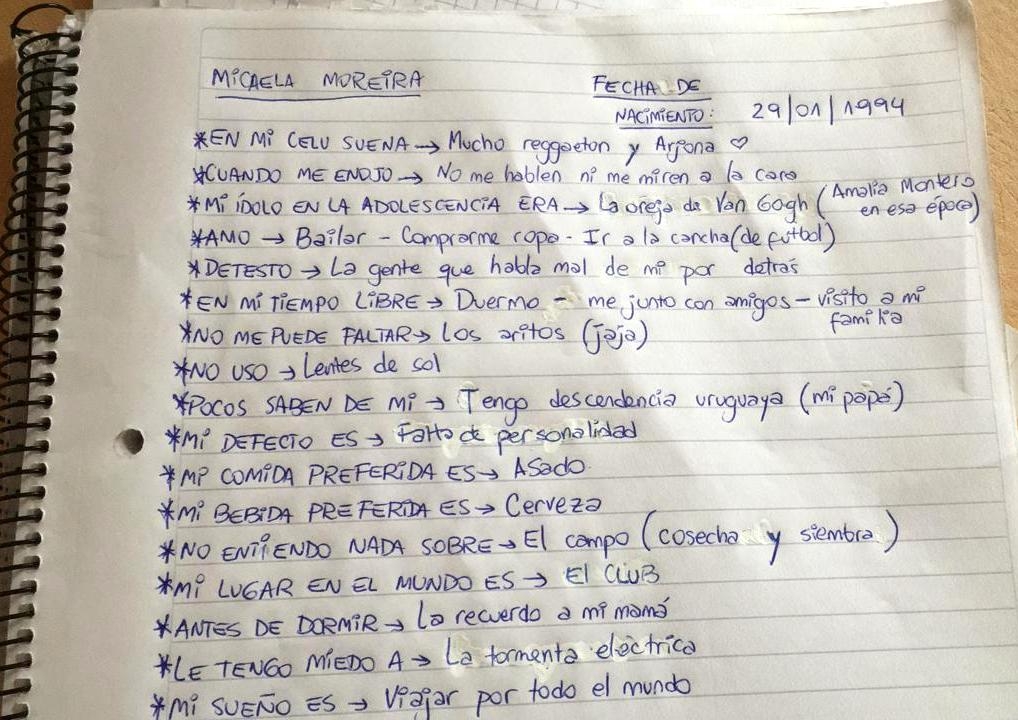 MiCAELA MOREiRA
FECHA DE
NACiMiENTO: 29/01/1994
*EN Mi CELU SUENA → Mucho reggaeton y Arjona ♡
*CUANDO ME ENOJO → No me hablen ni me miren a la cara
*Mi ÍDOLO EN LA ADOLESCENCiA ERA → La oreja de Van Gogh (Amalia Montero
en esa época)
*AMO → Bailar - Comprarme ropa - Ir a la cancha (de futbol)
*DETESTO → La gente que habla mal de mi por detrás
*EN Mi TiEMPO LiBRE → Duermo - me junto con amigos - visito a mi
familia
*NO ME PUEDE FALTAR → Los aritos (jaja)
*NO USO → Lentes de sol
*POCOS SABEN DE Mi → Tengo descendencia uruguaya (mi papá)
*Mi DEFECTO ES → Falta de personalidad
*Mi COMiDA PREFERiDA ES → ASado.
*Mi BEBiDA PREFERiDA ES → Cerveza
*NO ENTiENDO NADA SOBRE → El campo (cosecha y siembra)
*Mi LUGAR EN EL MUNDO ES → El CluB
*ANTES DE DORMiR → La recuerdo a mi mamá
*LE TENGO MiEDO A → La tormenta eléctrica
*Mi SUEÑO ES → Viajar por todo el mundo